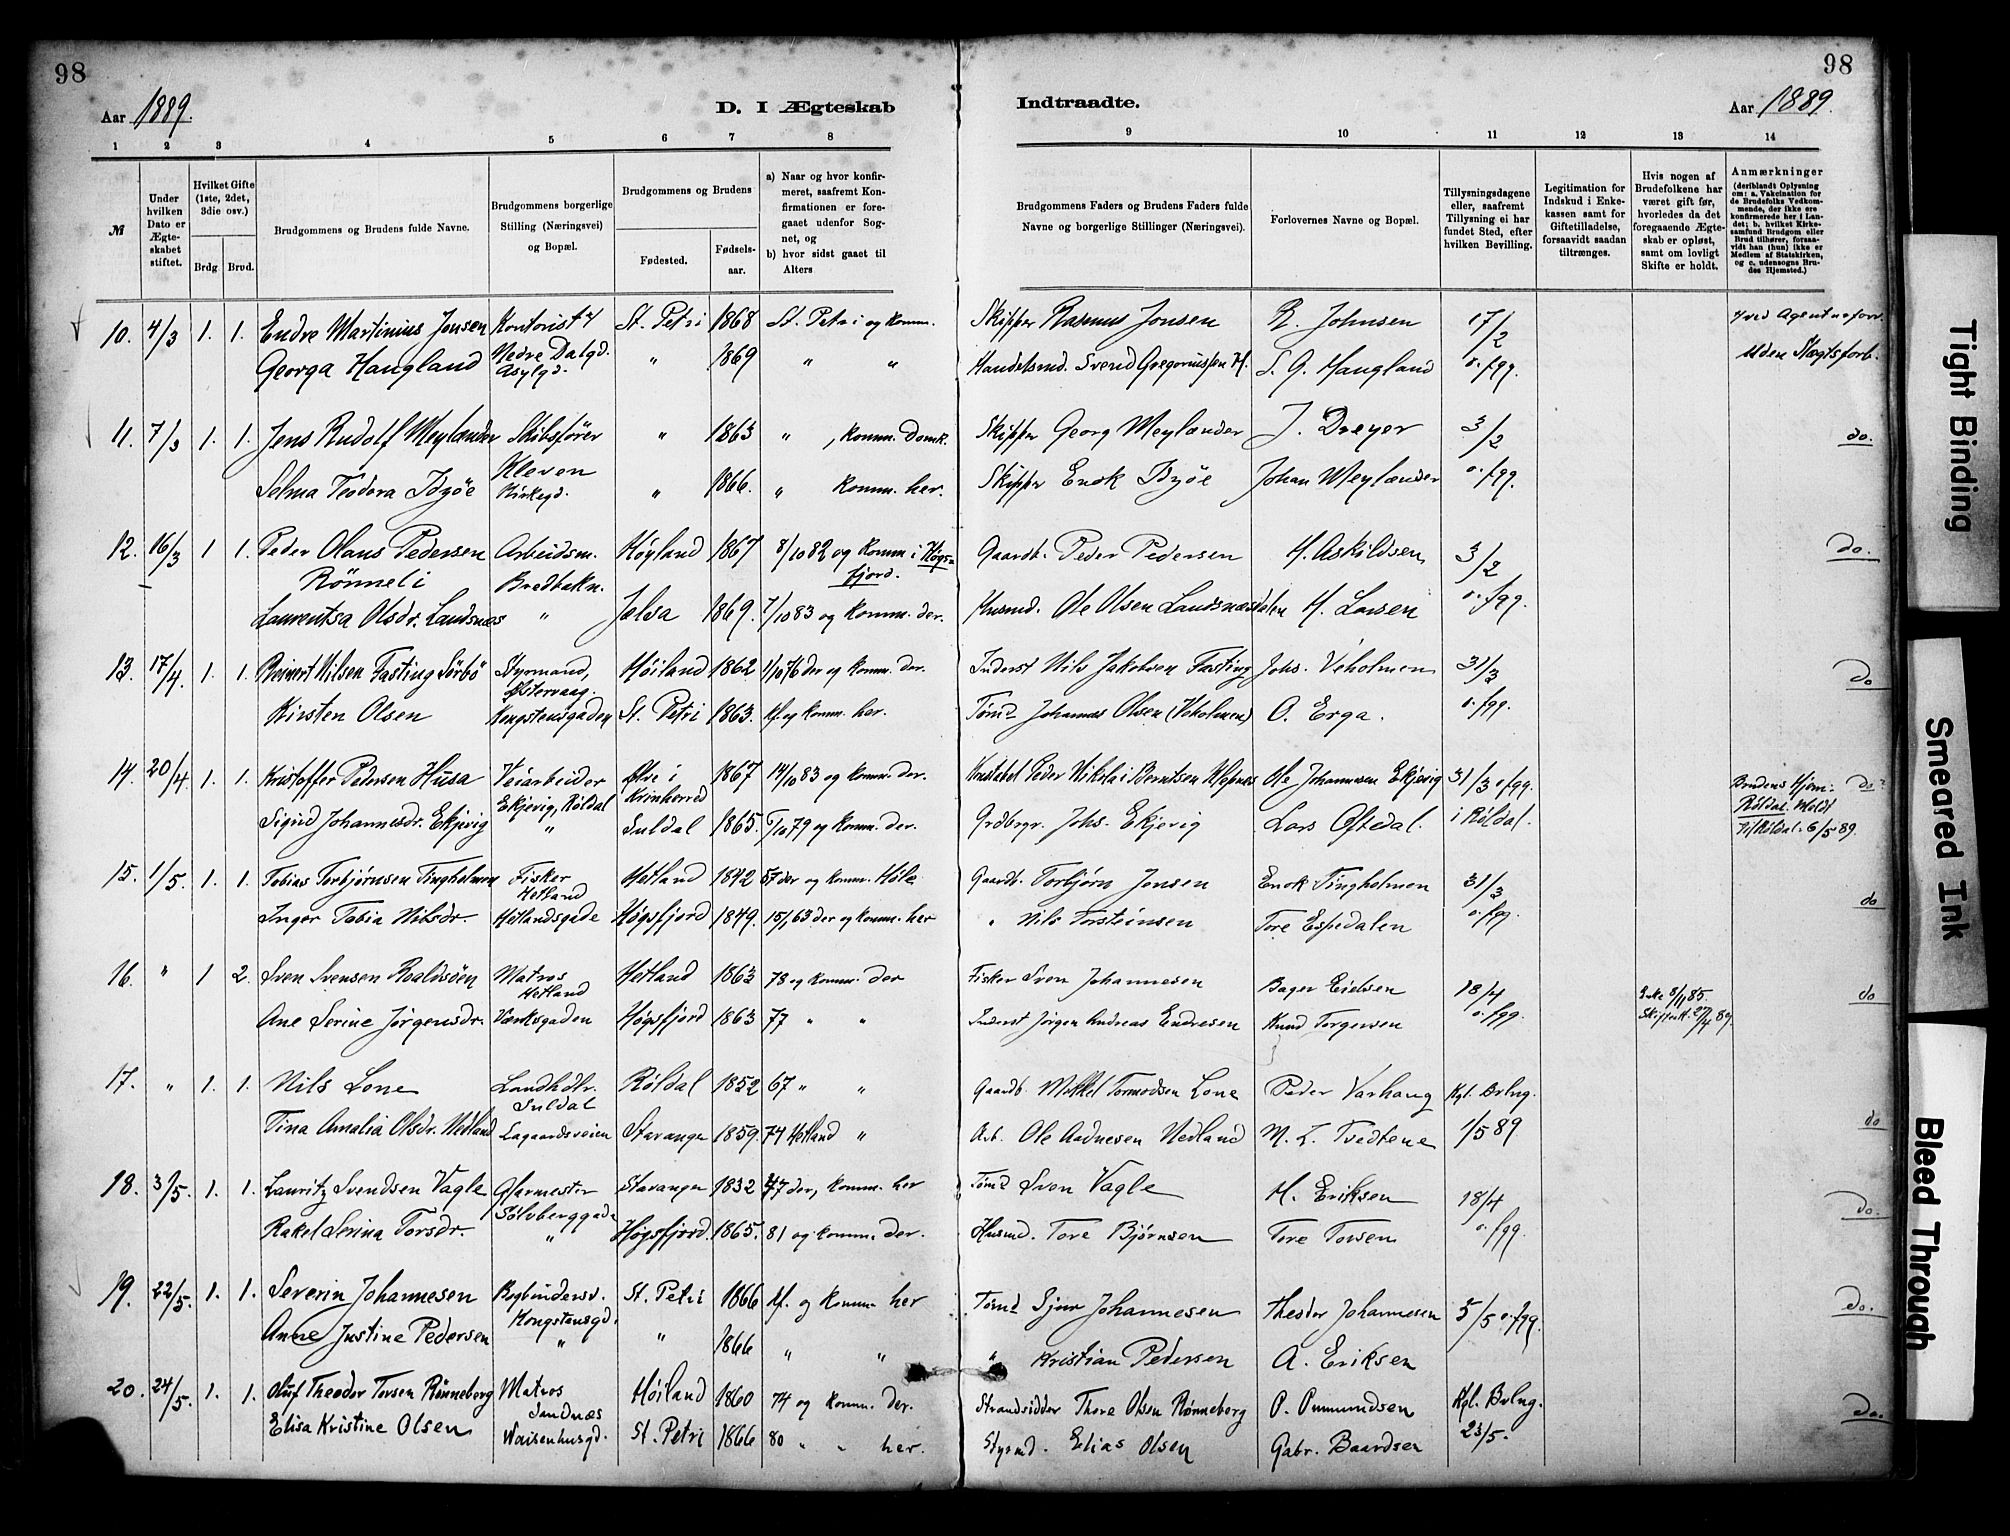 98
98
Aar 1889.
D. I Ægteskab
Indtraadte.
Aar 1889.
1 2 3 4 5 6 7 8 9 10 11 12 13 14
№
Under hvilken Dato er Ægteskabet stiftet.
Hvilket Gifte (1ste, 2det, 3die osv.)
Brdg. Brud.
Brudgommens og Brudens fulde Navne.
Brudgommens borgerlige Stilling (Næringsvei) og Bopæl.
Brudgommens og Brudens
Fødested.
Fødsels-aar.
a) Naar og hvor konfirmeret, saafremt Konfirmationen er foregaaet udenfor Sognet, og
b) hvor sidst gaaet til Alters
Brudgommens Faders og Brudens Faders fulde Navne og borgerlige Stillinger (Næringsvei).
Forlovernes Navne og Bopæl.
Tillysningsdagene eller, saafremt Tillysning ei har fundet Sted, efter hvilken Bevilling.
Legitimation for Indskud i Enkekassen samt for Giftetilladelse, forsaavidt saadan tiltrænges.
Hvis nogen af Brudefolkene har været gift før, hvorledes da det foregaaende Ægteskab er opløst, samt om lovligt Skifte er holdt.
Anmærkninger
(deriblandt Oplysning om: a. Vakcination for de Brudefolks Vedkommende, der ikke ere konfirmerede her i Landet; b. hvilket Kirkesamfund Brudgom eller Brud tilhører, forsaavidt han (hun) ikke er Medlem af Statskirken, og c. udensogns Brudes Hjemsted.)
10. 4/3 1. 1. Endre Martinius Jonsen Kontorist St. Petri 1868 St. Petri og komm. Skipper Rasmus Jonsen R. Johnsen 17/2
Georga Haugland Nedre Dalgd. Asylgd. " 1869 " " Handelsmd. Svend Gregoriussen H. S. G. Haugland o. fgg. Uden Slægtsforb.
11. 7/3 1. 1. Jens Rudolf Meylænder Skibsfører " 1863 " , komm. Domk. Skipper Georg Meylænder J. Dreyer 3/2 do.
Selma Teodora Idsøe Kleven Kirkegd. " 1866. " komm. her. Skipper Enok Idsøe Johan Meylænder o. fgg.
12. 16/3 1 1. Peder Olaus Pedersen Arbeidsm. Høyland 1867 8/10 82 og komm. i Høgs- Gaardb. Peder Pedersen H. Askildsen 3/2 do.
Rönneli Bredbakn. fjord.
Laurentsa Olsdr. Landsnæs " Jelsa 1869. 7/10 83 og komm. der. Husmd. Ole Olsen Landsnæsdalen H. Larsen o. fgg.
13. 17/4. 1. 1. Reinert Nilsen Fasting Sörbö Styrmand, Østervaag. Høiland 1862 1/10 76 der og komm. der. Inderst Nils Jakobsen Fasting Johs. Veholmen 31/3 do
Kirsten Olsen Kongstensgaden St. Petri 1863. Kf. og komm. her. Tømd Johannes Olsen (Veholmen) O. Erga. o. fgg.
14. 20/4 1. 1. Kristoffer Pedersen Husa Veiarbeider Øvre i Kvinherred 1867 14/10 83 og komm. der. Konstabel Peder Nikolai Berntsen Ole Johannesen Ekjevig 31/3 o. fgg. Brudens Hjem: do.
Sigrid Johannesdr. Ekjevig Ekjevig, Röldal " Suldal 1865. 5/10 79 og komm. der. Grdbrgr. Johs. Ekjevig Lars Oftedal. i Röldal. Röldal. Meldt til Röldal. 6/5 89.
15. 1/5. 1. 1. Tobias Torbjørnsen Tingholmen Fisker Hetland Hetland 1842 57 der og komm. Høle Gaardb. Torbjørn Jonsen Enok Tingholmen 31/3 do
Inger Tobia Nilsdr. Hetlandsgade Høgsfjord 1849. 15/1 63 der og komm. her " Nils Torsteinsen Tore Espedalen o. fgg.
16. " 1 2. Sven Svensen Roaldsöen Matros Hetland Hetland 1863 78 og komm. der Fisker Sven Johannesen Bager Eielsen 18/4 Enke 8/11 85. do
Ane Serine Jörgensdr. Værksgaden Høgsfjord 1863 77 " " Inderst Jörgen Andreas Endresen Knud Torgersen o. fgg. Skifteatt. 27/4 89.
17. " 1. 1. Nils Lone Landhdlr. Suldal Röldal 1852 67 " " Gaardb. Mikkel Tormodsen Lone Peder Varhaug Kgl. Bvlng. do
Tina Amalia Olsdr. Nedland Lagaardsveien Stavanger 1859. 74 Hetland " Arb. Ole Aadnesen Nedland M. L. Tvedtene 1/5 89
18. 3/5. 1. 1. Lauritz Svendsen Vagle Glarmester Sølvberggade Stavanger 1832 47 der, komm. her Tømd Sven Vagle H. Eriksen 18/4 do.
Rakel Serina Torsdr. " Høgsfjord. 1865. 81 og komm. der. Husmd. Tore Bjørnsen Tore Torsen o. fgg.
19. 22/5. 1. 1. Severin Johannesen Bogbindersv. Kongstensgd. St. Petri 1866 Kf. og komm. her Tømd Sjur Johannesen Thestor Johannesen 5/5 o. fgg. do.
Anne Justine Pedersen " " 1866 " " " Kristian Pedersen A. Eriksen
20. 24/5. 1. 1. Oluf Theodor Torsen Rønneberg Matros Sandnæs Høiland 1860 74 og komm. der. Strandsidder Thore Olsen Rønneberg P. Ommundsen Kgl. Bvlng. do.
Elisa Kristine Olsen Waisenhusgd. St. Petri 1866 80 " " her. Styrmd. Elias Olsen Gabr. Baardsen 23/5.
Tight Binding
Smeared Ink
Bleed Through